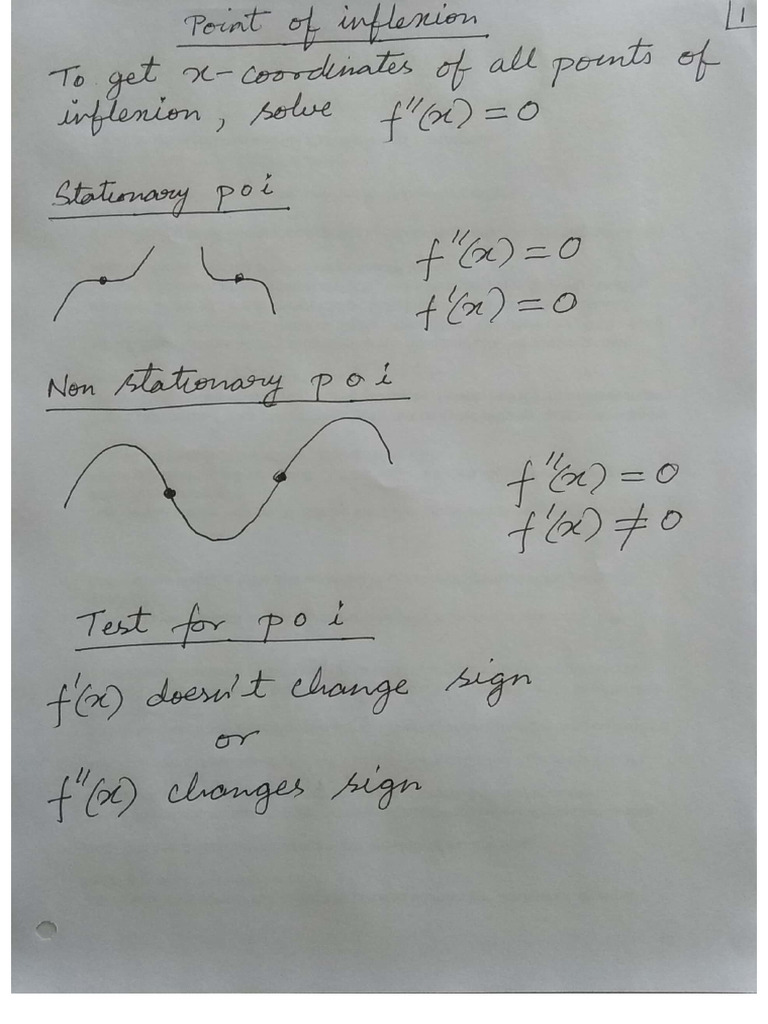 Point of inflexion
1
To get x-coordinates of all points of
inflexion, solve f''(x) = 0
Stationary p o i
f''(x) = 0
f'(x) = 0
Non stationary p o i
f''(x) = 0
f'(x) ≠ 0
Test for p o i
f'(x) doesn't change sign
or
f''(x) changes sign